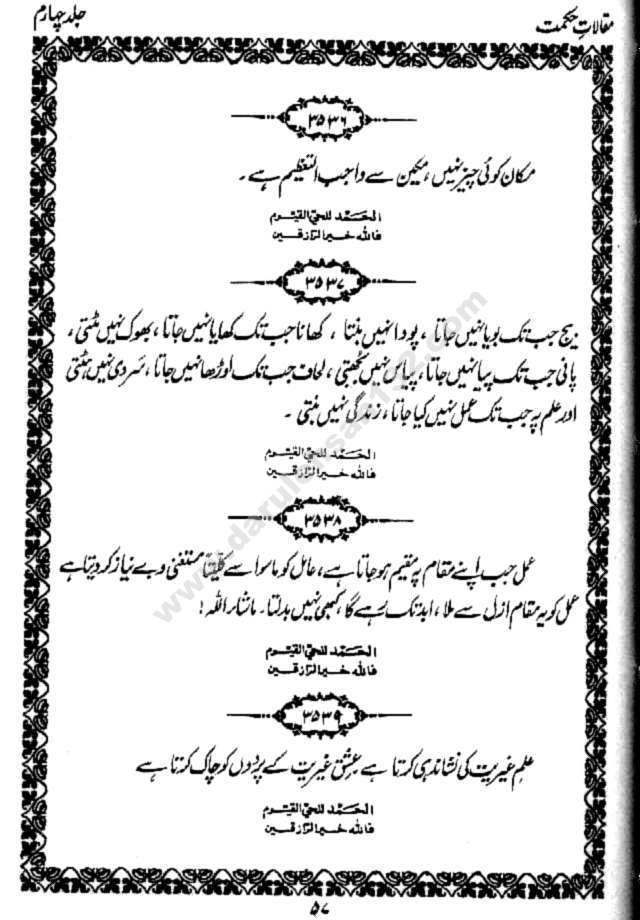 مقالاتِ حکمت
جلد چہارم
۳۵۳۶
مکان کوئی چیز نہیں، مکین سے واجب التعظیم ہے۔
الحَمد للحيّ القيّوم
فالله خير الرّازقين
۳۵۳۷
بیج جب تک بویا نہیں جاتا، پودا نہیں بنتا، کھانا جب تک کھایا نہیں جاتا، بھوک نہیں مٹتی،
پانی جب تک پیا نہیں جاتا، پیاس نہیں بجھتی، لحاف جب تک اوڑھا نہیں جاتا، سردی نہیں ہٹتی
اور علم پہ جب تک عمل نہیں کیا جاتا، زندگی نہیں بنتی۔
الحَمد للحيّ القيّوم
فالله خير الرّازقين
۳۵۳۸
عمل جب اپنے مقام پہ مقیم ہو جاتا ہے، عامل کو ماسوا سے کلیتاً مستغنی و بے نیاز کر دیتا ہے
عمل کو یہ مقام ازل سے ملا، ابد تک رہے گا، کبھی نہیں بدلتا۔ ماشاء اللہ!
الحَمد للحيّ القيّوم
فالله خير الرّازقين
۳۵۳۹
علم غیریت کی نشاندہی کرتا ہے عشق غیریت کے پردوں کو چاک کرتا ہے
الحَمد للحيّ القيّوم
فالله خير الرّازقين
۵۷